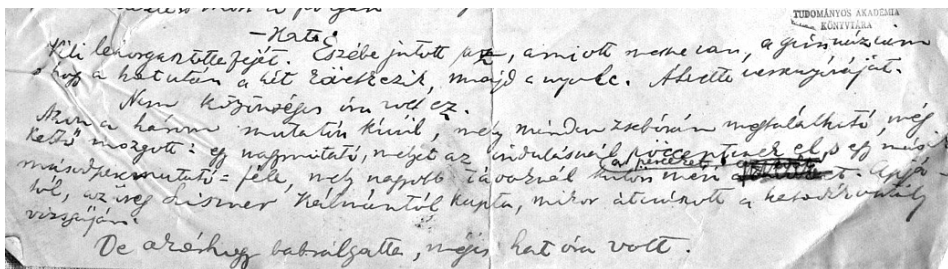 TUDOMÁNYOS AKADÉMIA
KÖNYVTÁRA
— Hat é
Kili leHorgasztotta fejét. Eszébe jutott az, ami ott benne van, a gimnázium
s hogy a hat után a hét következik, majd a nyolc. Átvette versenyóráját.
Nem közönséges óra volt ez.
Azon a három mutatón kívül, mely minden zsebórán megtalálható, még
kettő mozgott: egy nagymutató, melyet az indulásnál pöccentenek el, s egy másik
másodpercmutató-féle, mely nagyobb távoknál külön méri a perceket. Apjá-
tól, az öreg Liszner Kálmántól kapta, mikor átcsúszott a hetedik osztály
vizsgáján.
De akárhogy babrálgatta, mégis hat óra volt.